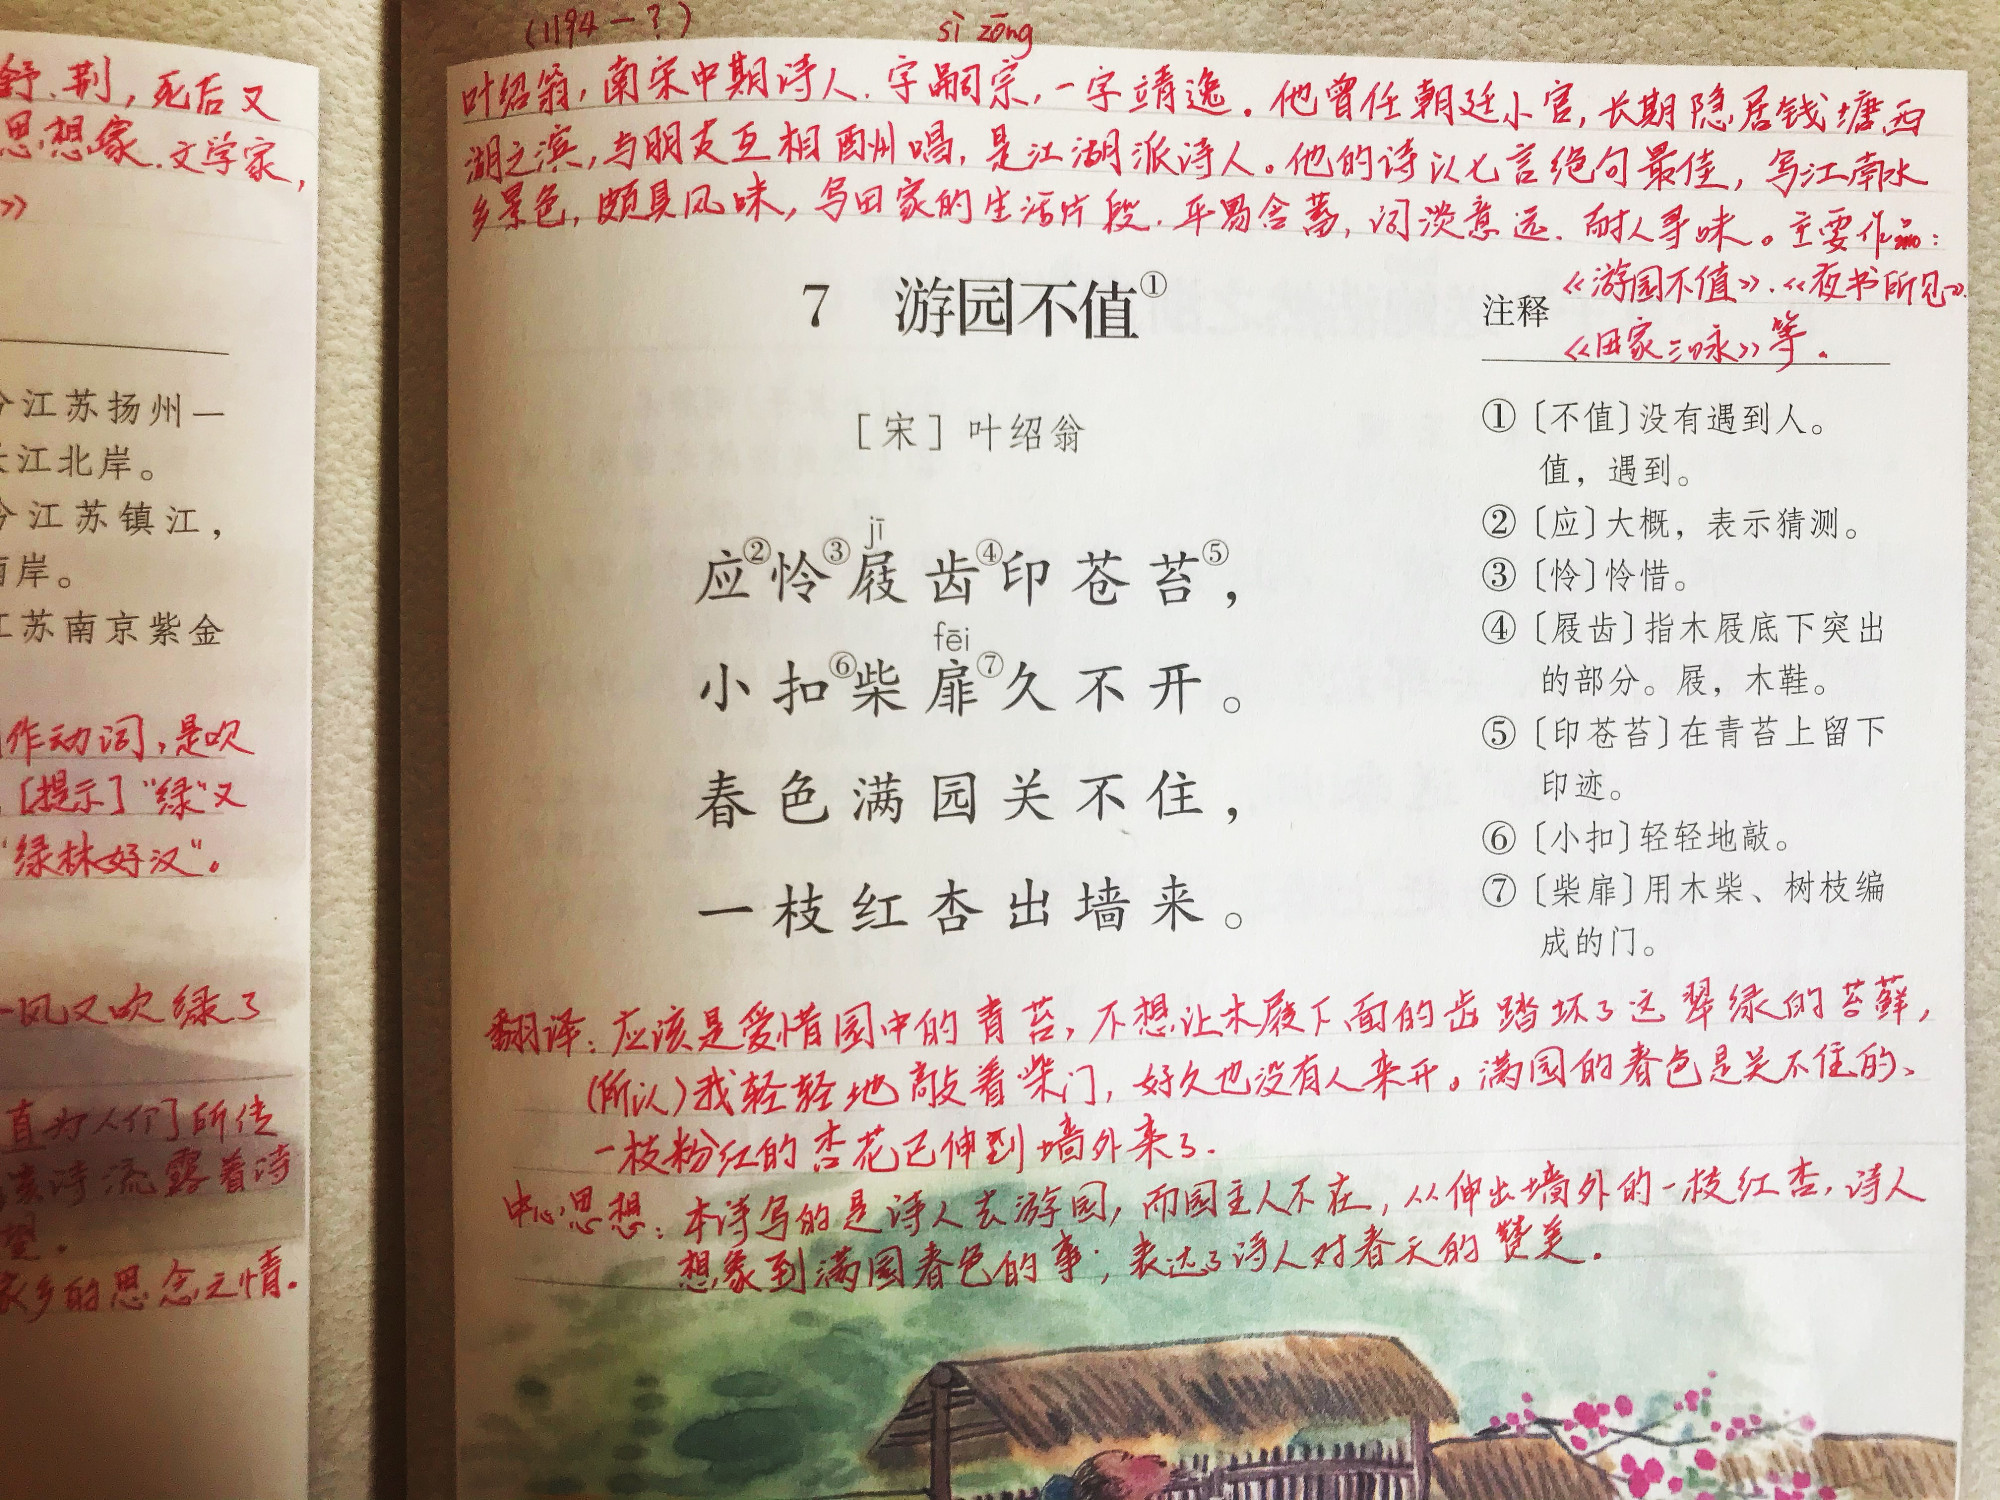 舒、荆，死后又
思想家、文学家，
》
今江苏扬州一
长江北岸。
今江苏镇江，
南岸。
江苏南京紫金
作动词，是吹
[提示]“绿”又
“绿林好汉”。
一风又吹绿了
直为人们]所传
该诗流露着诗
望。
家乡的思念之情。
(1194－？)
sì zōng
叶绍翁，南宋中期诗人，字嗣宗，一字靖逸。他曾任朝廷小官，长期隐居钱塘西
湖之滨，与朋友互相酬唱，是江湖派诗人。他的诗以七言绝句最佳，写江南水
乡景色，颇具风味，写田家的生活片段，平易含蓄，词淡意远，耐人寻味。主要作品：
《游园不值》、《夜书所见》
《田家三咏》等。
7 游园不值①
［宋］叶绍翁
jī
应②怜③屐齿④印苍苔⑤，
fēi
小扣⑥柴扉⑦久不开。
春色满园关不住，
一枝红杏出墙来。
注释
①〔不值〕没有遇到人。
值，遇到。
②〔应〕大概，表示猜测。
③〔怜〕怜惜。
④〔屐齿〕指木屐底下突出
的部分。屐，木鞋。
⑤〔印苍苔〕在青苔上留下
印迹。
⑥〔小扣〕轻轻地敲。
⑦〔柴扉〕用木柴、树枝编
成的门。
翻译：应该是爱惜园中的青苔，不想让木屐下面的齿踏坏了这翠绿的苔藓，
(所以)我轻轻地敲着柴门，好久也没有人来开。满园的春色是关不住的、
一枝粉红的杏花已伸到墙外来了.
中心思想：本诗写的是诗人去游园，而园主人不在，从伸出墙外的一枝红杏，诗人
想象到满园春色的事；表达了诗人对春天的赞美。